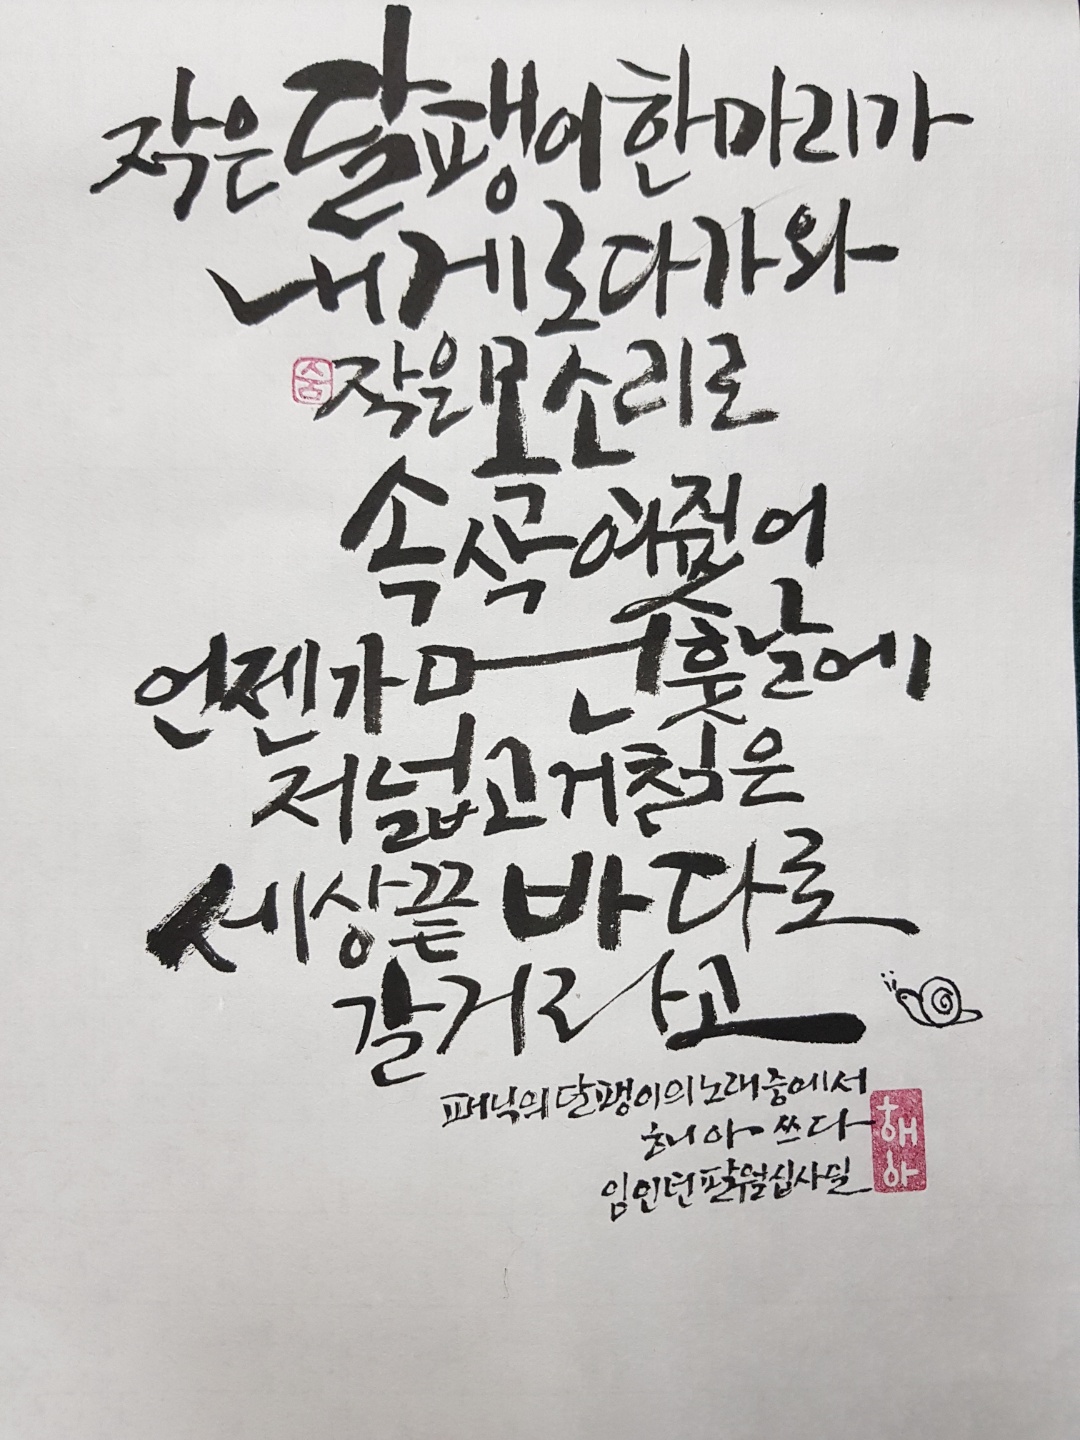 작은 달팽이 한 마리가
내게로 다가와
작은 목소리로
속삭여줬어
언젠가 먼 훗날에
저 넓고 거칠은
세상 끝 바다로
갈 거라고
패닉의 달팽이의 노래 중에서
해아 쓰다
임인년 팔월 십사일
해아